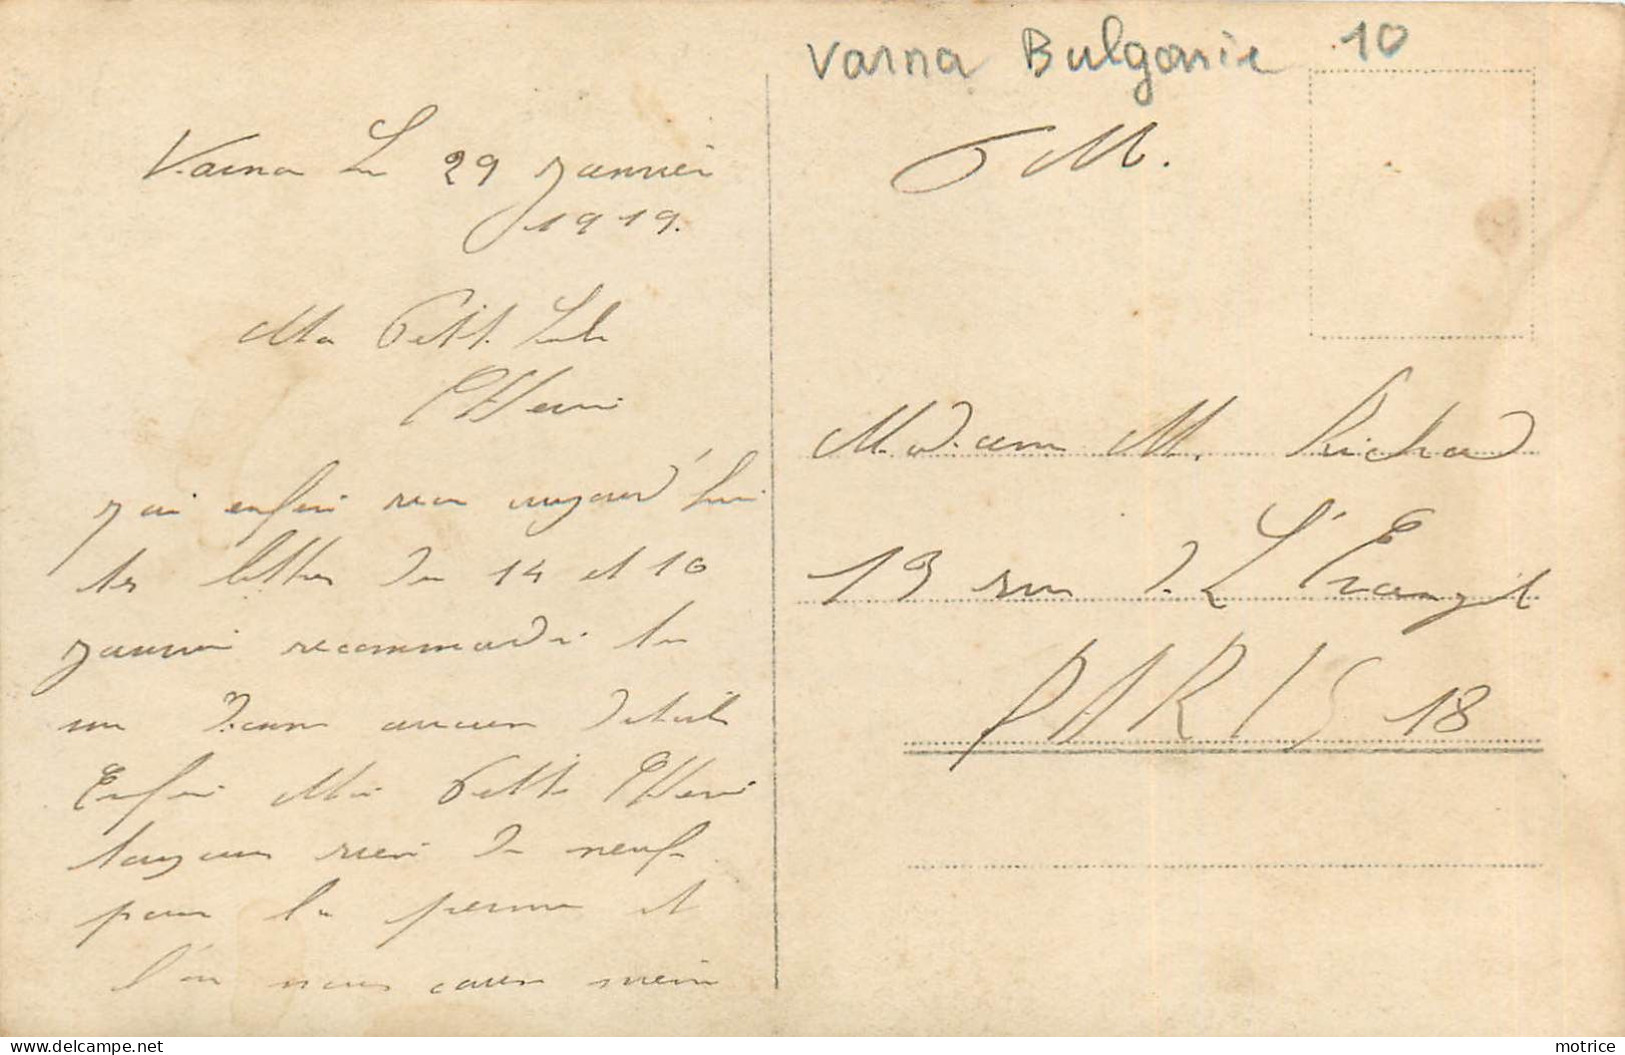 Varna Bulgarie 10
Varna Le 29 Janvier
1919.
FM.
Ma Petite
Cherri
J ai enfin recu aujourd'hui
les lettres du 14 et 16
Janvier recommandé
un ancun Detail
Enfin Ma Petite Cherri
toujour rien de neuf
pour la perme et
l'on nous
Madame M. Richard
13 rue de L'Evangile
PARIS 18
delcampe.net
motrice